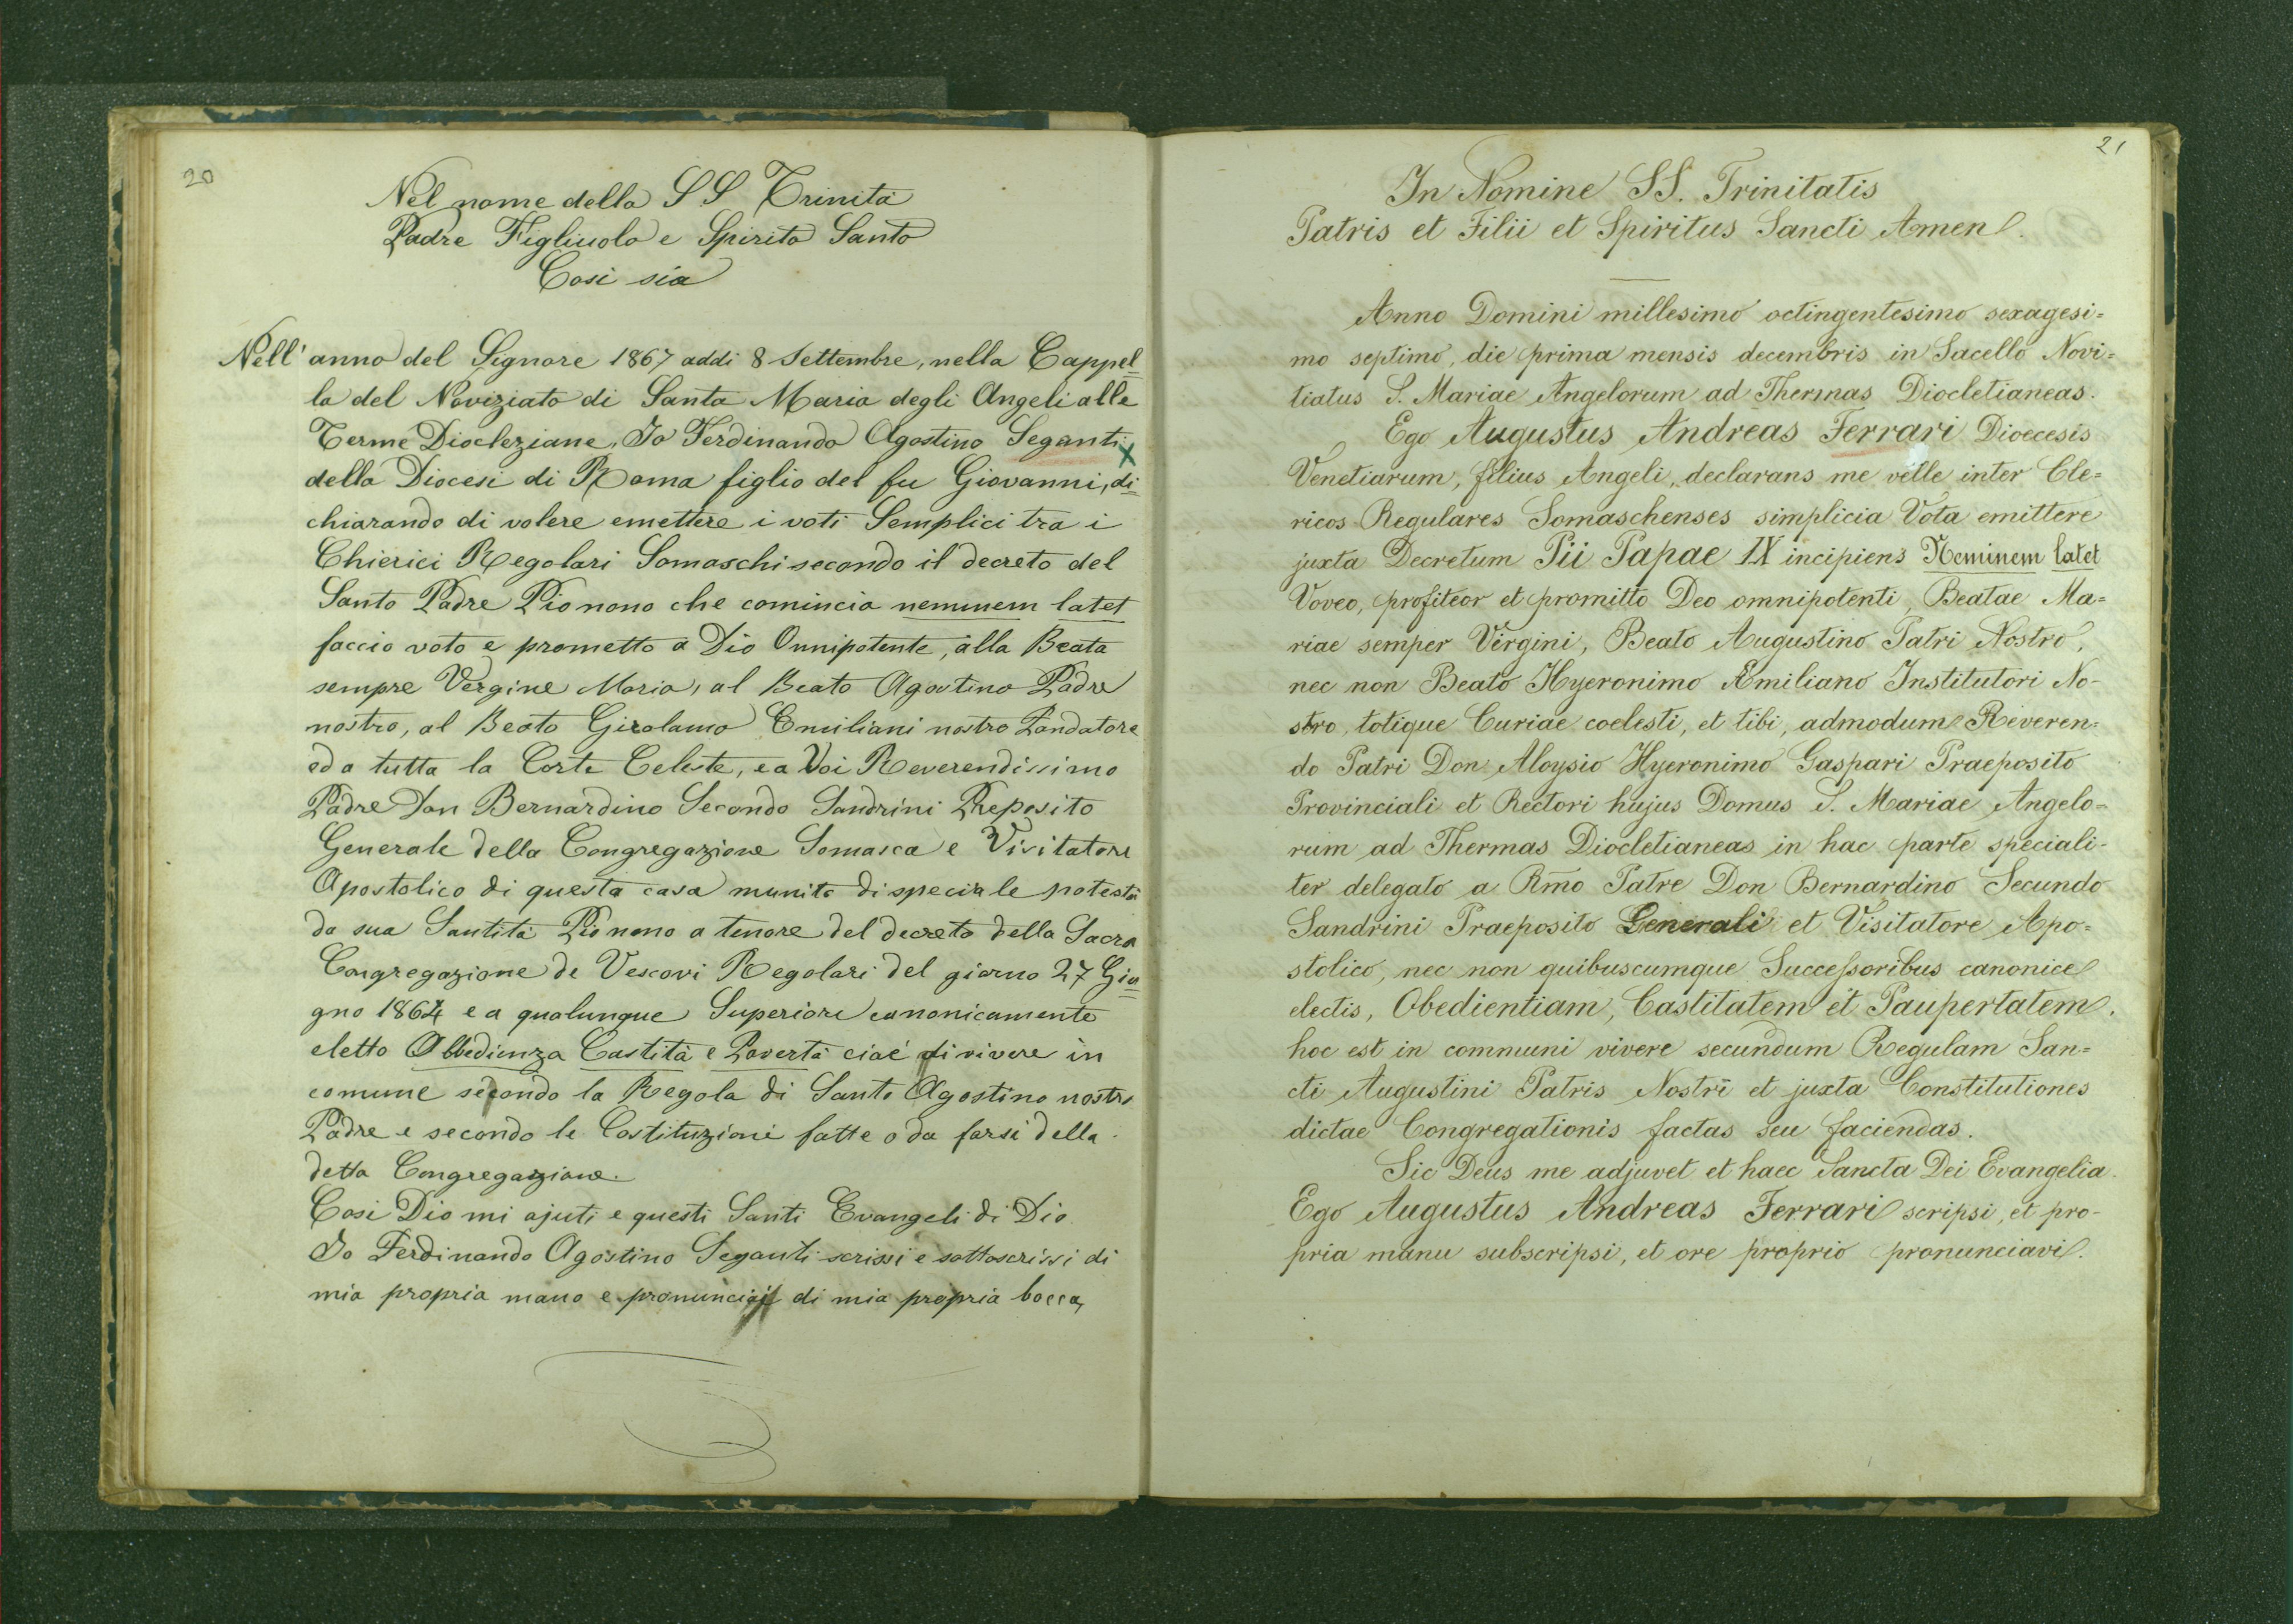 20
Nel nome della SS Trinità
Padre Figliuolo e Spirito Santo
Cosi sia
Nell' anno del Signore 1867 addi 8 Settembre, nella Cappel=
la del Noviziato di Santa Maria degli Angeli alle
Terme Diocleziane, Io Ferdinando Agostino Seganti
della Diocesi di Roma figlio del fu Giovanni, di=
chiarando di volere emettere i voti Semplici tra i
Chierici Regolari Somaschi secondo il decreto del
Santo Padre Pio nono che comincia neminem latet
faccio voto e prometto a Dio Onnipotente, alla Beata
sempre Vergine Maria, al Beato Agostino Padre
nostro, al Beato Girolamo Emiliani nostro Fondatore
ed a tutta la Corte Celeste, e a Voi Reverendissimo
Padre Don Bernardino Secondo Sandrini Preposito
Generale della Congregazione Somasca e Visitatore
Apostolico di questa casa munito di speciale potestà
da sua Santità Pio nono a tenore del decreto della Sacra
Congregazione de Vescovi Regolari del giorno 27 Giu=
gno 1864 e a qualunque Superiore canonicamente
eletto Obbedienza Castità e Povertà cioè di vivere in
comune secondo la Regola di Santo Agostino nostro
Padre e secondo le Costituzioni fatte o da farsi della
detta Congregazione.
Cosi Dio mi ajuti e questi Santi Evangeli di Dio.
Io Ferdinando Agostino Seganti scrissi e sottoscrissi di
mia propria mano e pronunciai di mia propria bocca,
21
In Nomine SS. Trinitatis
Patris et Filii et Spiritus Sancti Amen.
Anno Domini millesimo octingentesimo sexagesi=
mo septimo, die prima mensis decembris in Sacello Novi=
tiatus S. Mariae Angelorum ad Thermas Diocletianeas.
Ego Augustus Andreas Ferrari Dioecesis
Venetiarum, filius Angeli, declarans me velle inter Cle=
ricos Regulares Somaschenses simplicia Vota emittere
juxta Decretum Pii Papae IX incipiens Neminem latet
Voveo, profiteor et promitto Deo omnipotenti, Beatae Ma=
riae semper Virgini, Beato Augustino Patri Nostro,
nec non Beato Hyeronimo Æmiliano Institutori No-
stro, totique Curiae coelesti, et tibi, admodum Reveren=
do Patri Don Aloysio Hyeronimo Gaspari Praeposito
Provinciali et Rectori hujus Domus S. Mariae Angelo=
rum ad Thermas Diocletianeas in hac parte speciali-
ter delegato a Rmo Patre Don Bernardino Secundo
Sandrini Praeposito Generali et Visitatore Apo=
stolico, nec non quibuscumque Successoribus canonice
electis, Obedientiam, Castitatem et Paupertatem,
hoc est in communi vivere secundum Regulam San=
cti Augustini Patris Nostri et juxta Constitutiones
dictae Congregationis factas seu faciendas.
Sic Deus me adjuvet et haec Sancta Dei Evangelia.
Ego Augustus Andreas Ferrari scripsi, et pro-
pria manu subscripsi, et ore proprio pronunciavi.